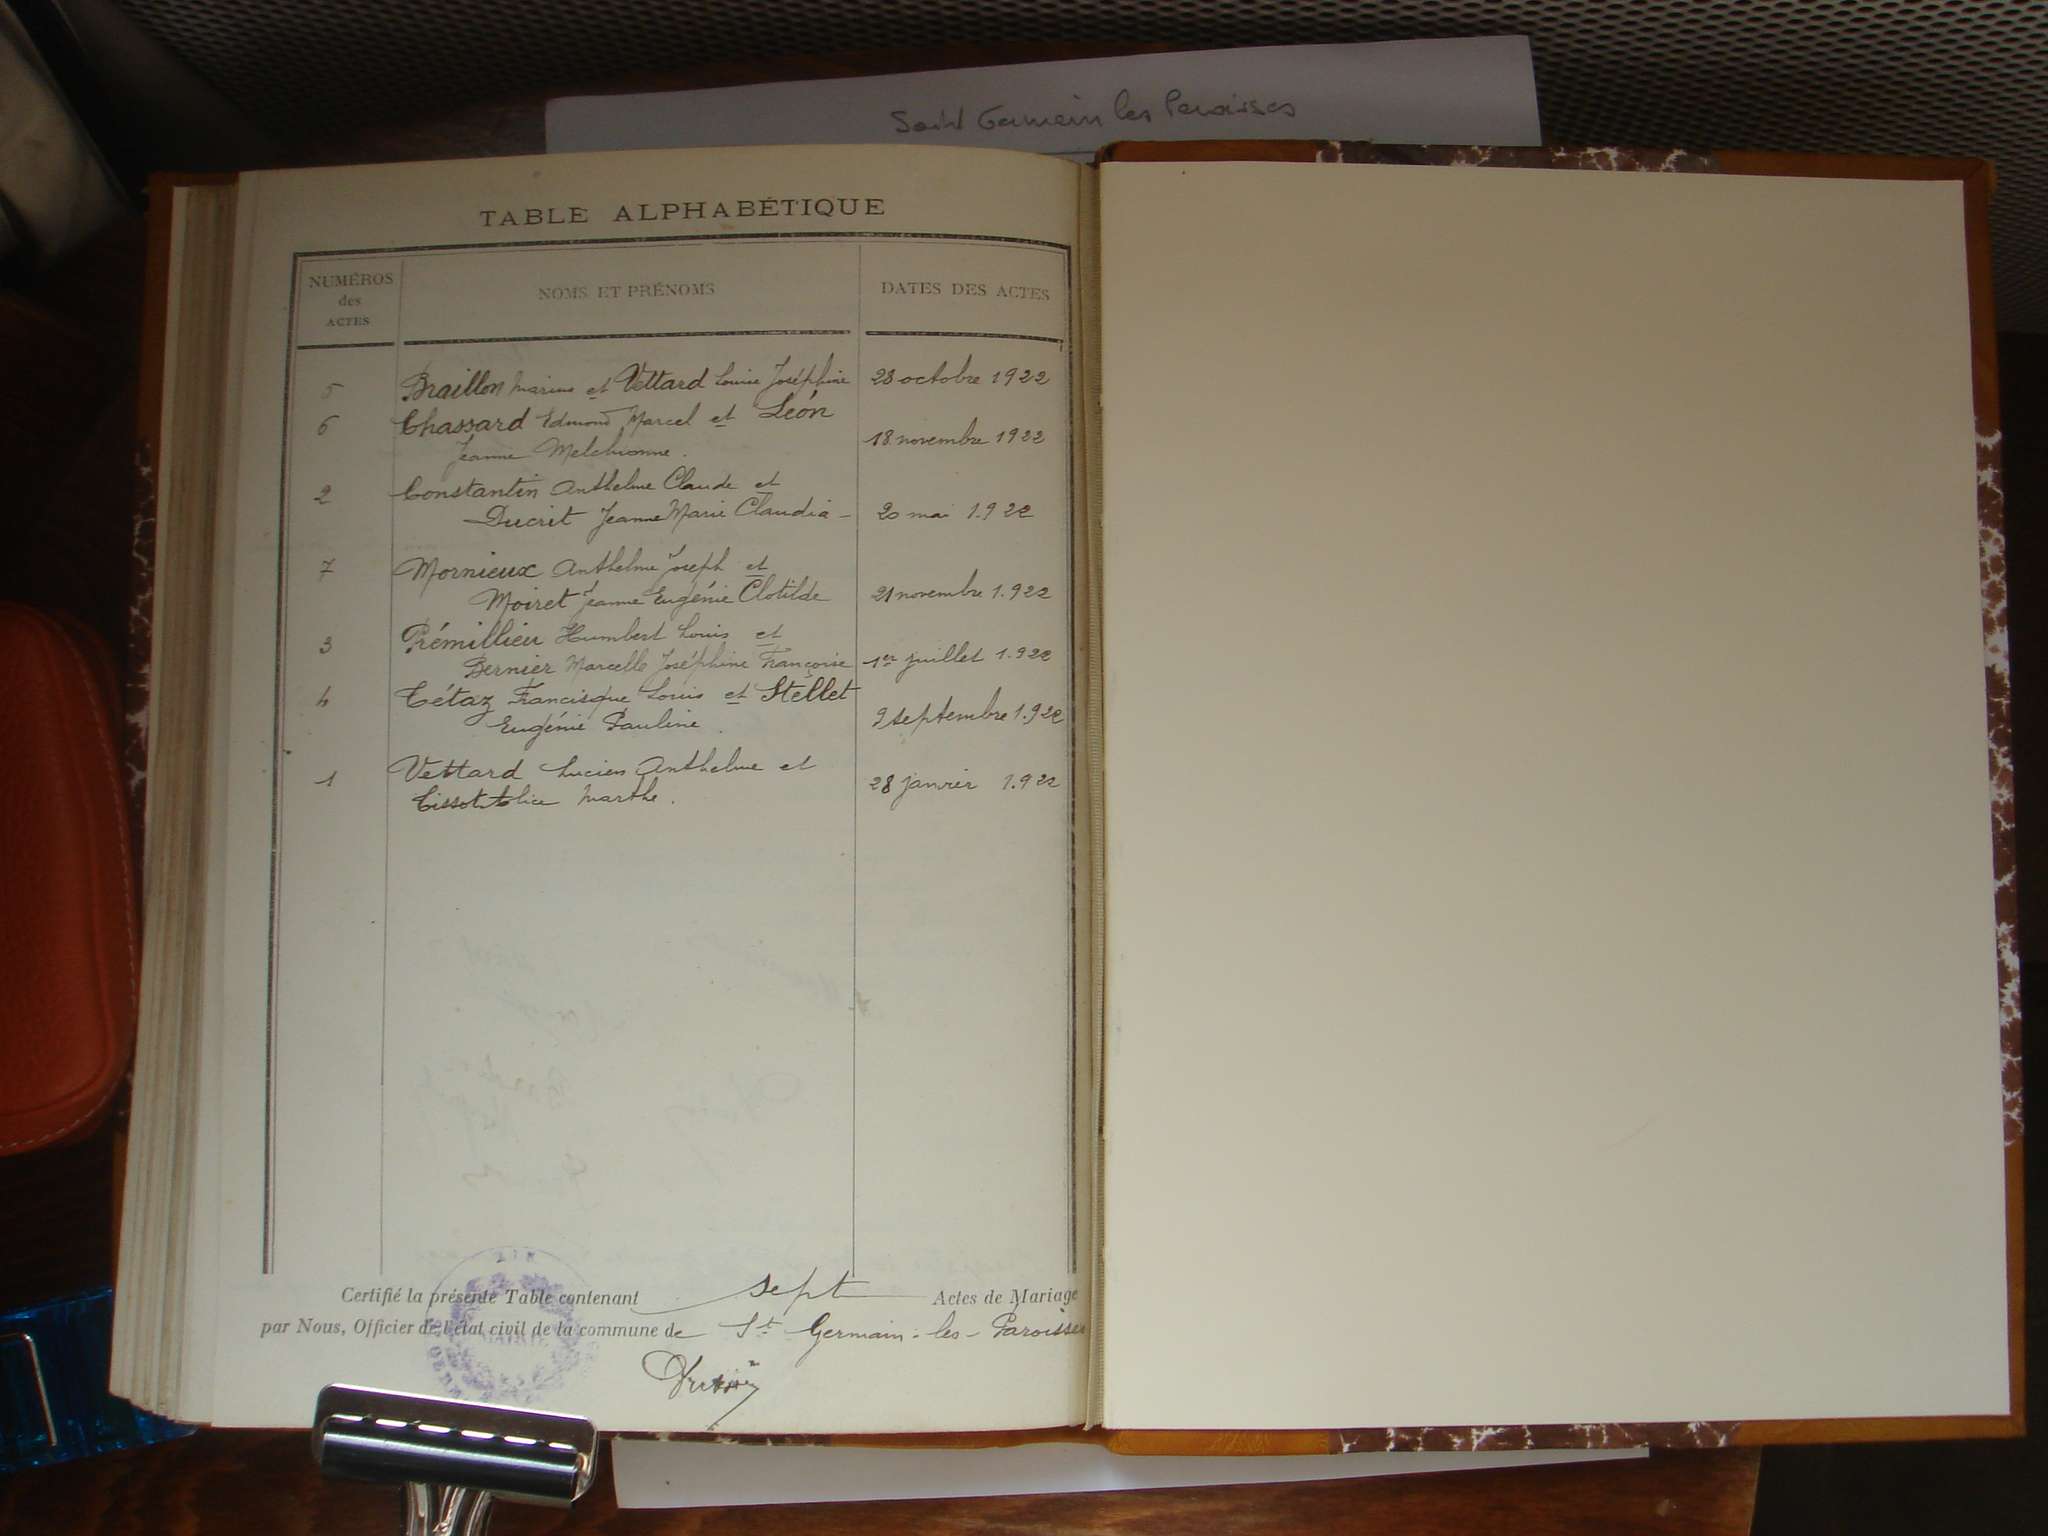 Saint Germain les Paroisses
TABLE ALPHABÉTIQUE
NUMÉROS
des
ACTES
NOMS ET PRÉNOMS
DATES DES ACTES
5 Braillon Marius et Vettard Louise Joséphine 28 octobre 1922
6 Chassard Edmond Marcel et Léon
Jeanne Melchionne. 18 novembre 1922
2 Constantin Anthelme Claude et
Ducrit Jeanne Marie Claudia - 20 mai 1.922
7 Mornieux Anthelme Joseph et
Moiret Jeanne Eugénie Clotilde 21 novembre 1.922
3 Prémillieu Humbert Louis et
Bernier Marcelle Joséphine Françoise 1er juillet 1.922
4 Tétaz Francisque Louis et Stellet
Eugénie Pauline. 9 septembre 1.922
1 Vettard Lucien Anthelme et
Tissot Alice Marthe. 28 janvier 1.922
Certifié la présente Table contenant sept Actes de Mariage
par Nous, Officier de l'état civil de la commune de St Germain-les-Paroisses
MAIRIE